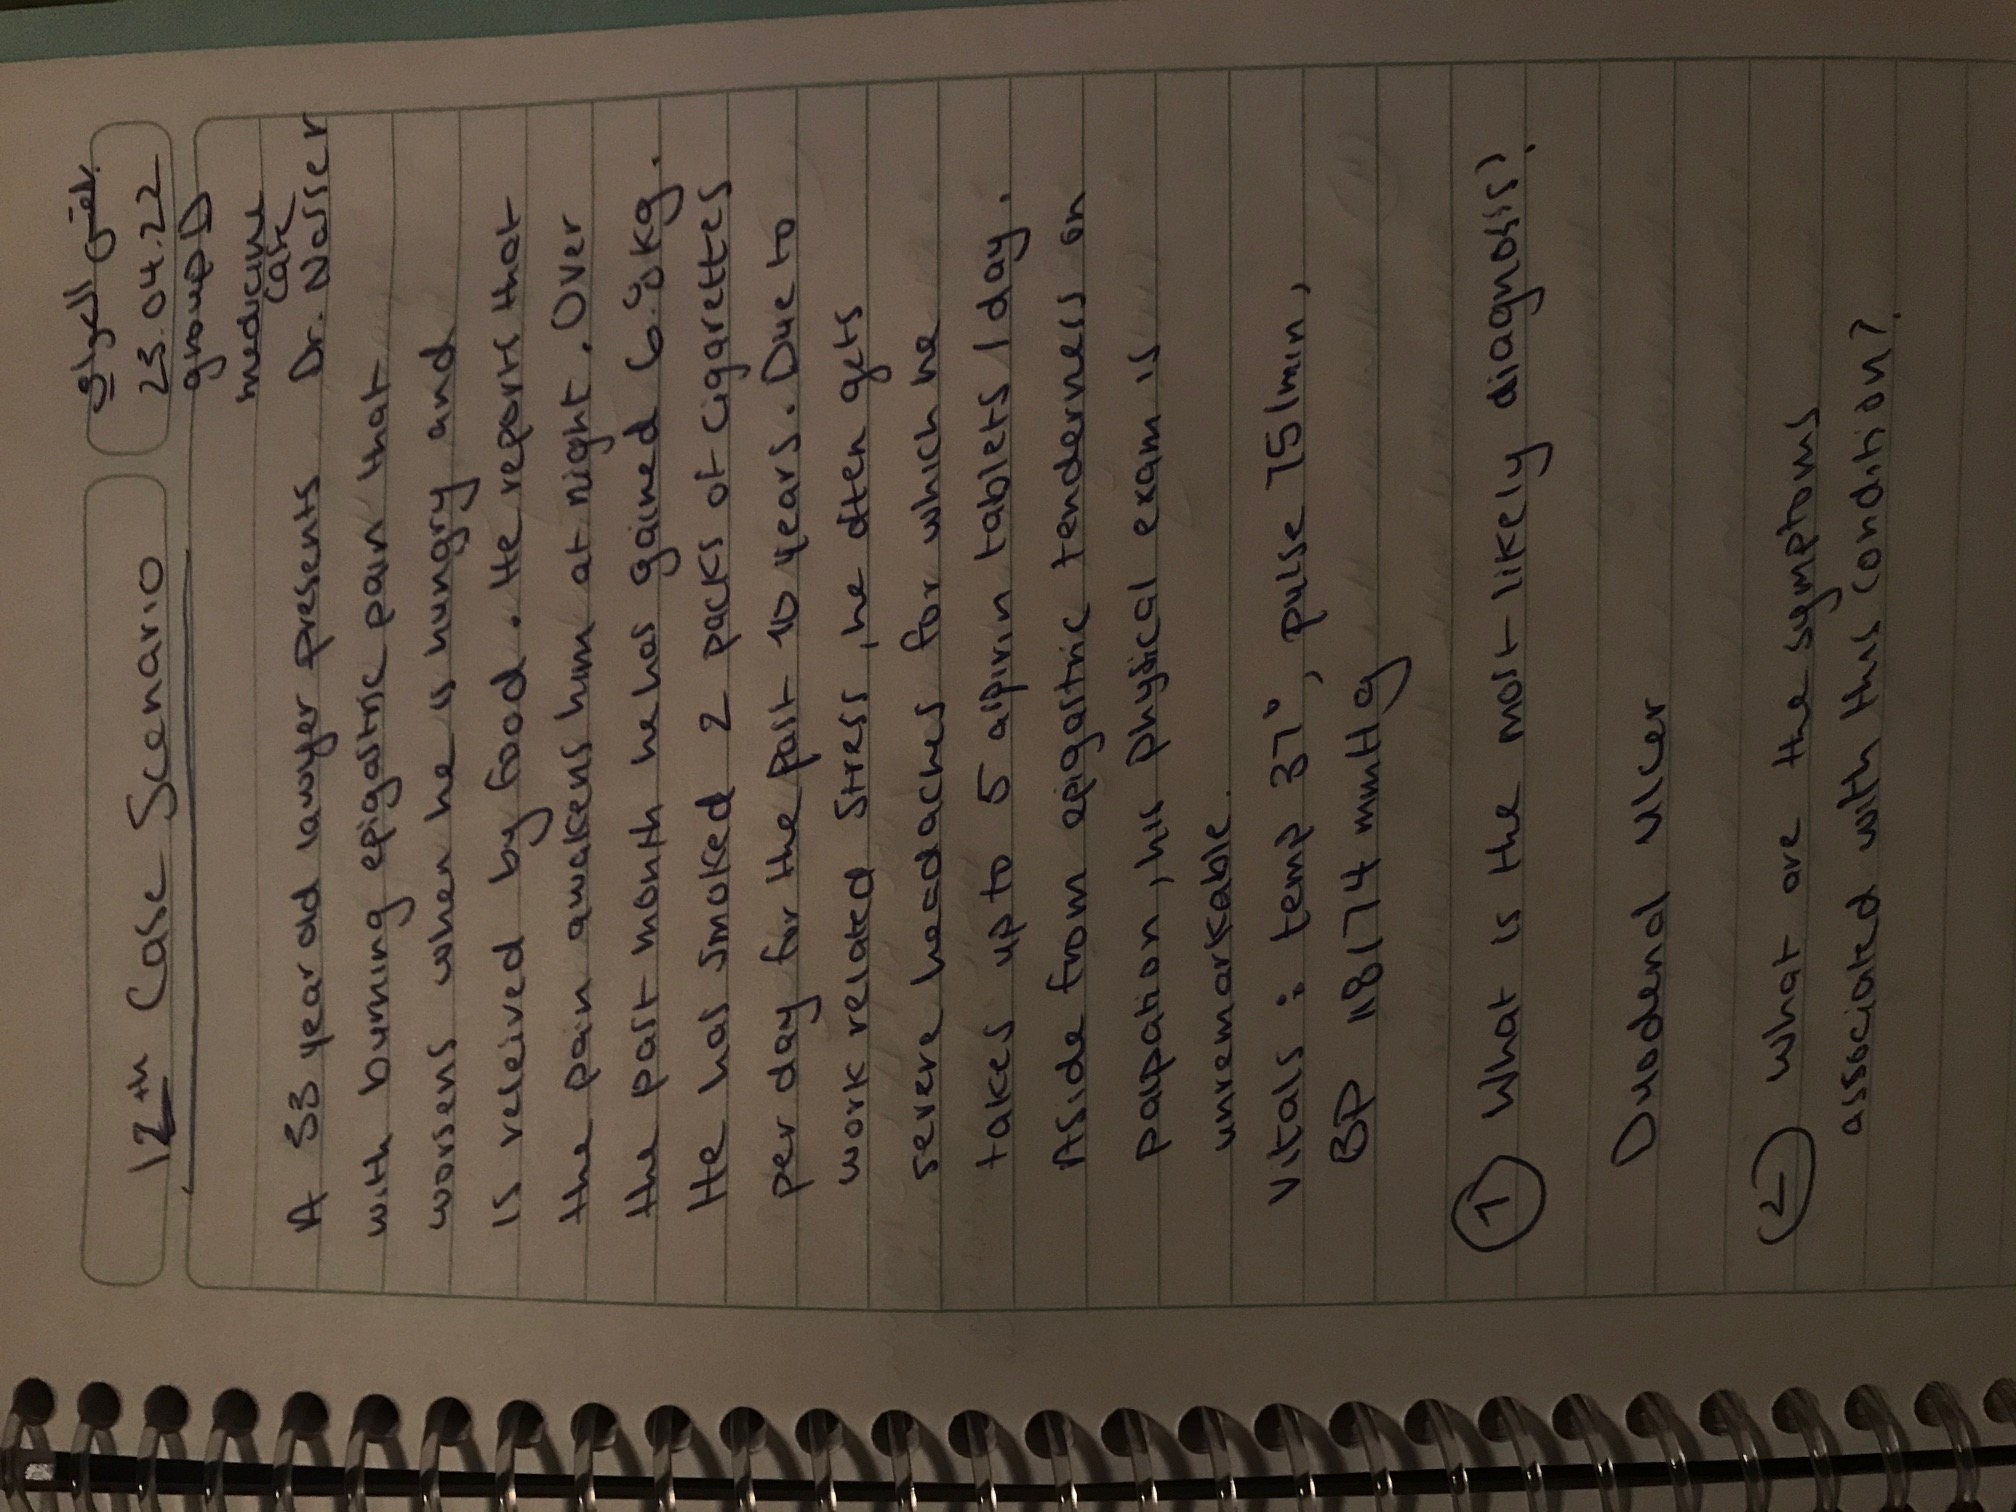 12th Case Scenario
23.04.22
group D
medicine
Dr. Nasser
A 33 year old lawyer presents
with burning epigastric pain that
worsens when he is hungry and
is releived by food. He reports that
the pain awakens him at night. Over
the past month he has gained 6.8 kg.
He has smoked 2 packs of cigarettes
per day for the past 10 years. Due to
work related stress, he often gets
severe headaches for which he
takes up to 5 aspirin tablets / day.
Aside from epigastric tenderness on
palpation, his physical exam is
unremarkable.
Vitals: temp 37°, pulse 75/min,
BP 118/74 mmHg
1 What is the most likely diagnosis?
Duodenal ulcer
2 What are the symptoms
associated with this condition?